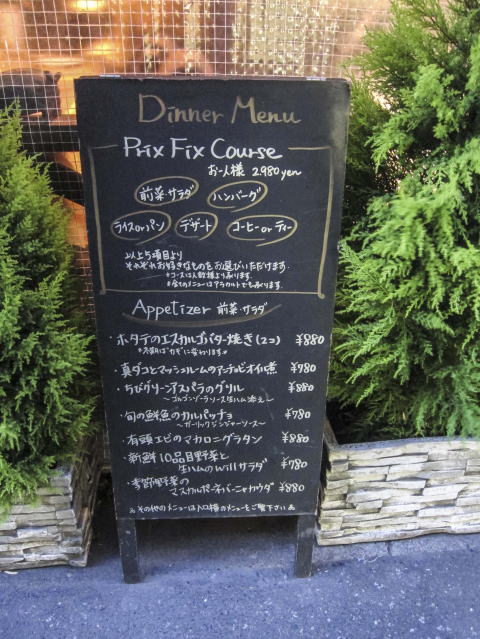 Dinner Menu
Prix Fix Course
お一人様 2,980yen
前菜・サラダ
ハンバーグ
ライスorパン
デザート
コーヒーorティー
以上5項目より
それぞれお好きなものをお選びいただけます。
*コースは人数様より承ります。
*全てのメニューはアラカルトでも承ります。
Appetizer 前菜・サラダ
・ホタテのエスカルゴバター焼き(2コ) ¥880
・真ダコとマッシュルームのアンチョビオイル煮 ¥980
・ちびグリーンアスパラのグリル ¥880
~ゴルゴンゾーラソース生ハム添え~
・旬の鮮魚のカルパッチョ ¥780
~ガーリックジンジャーソース~
・有頭エビのマカロニグラタン ¥880
・新鮮10品目野菜と
生ハムのWillサラダ ¥780
・季節野菜の
マスカルポーネバーニャカウダ ¥880
その他のメニューは入口横のメニューをご覧下さい